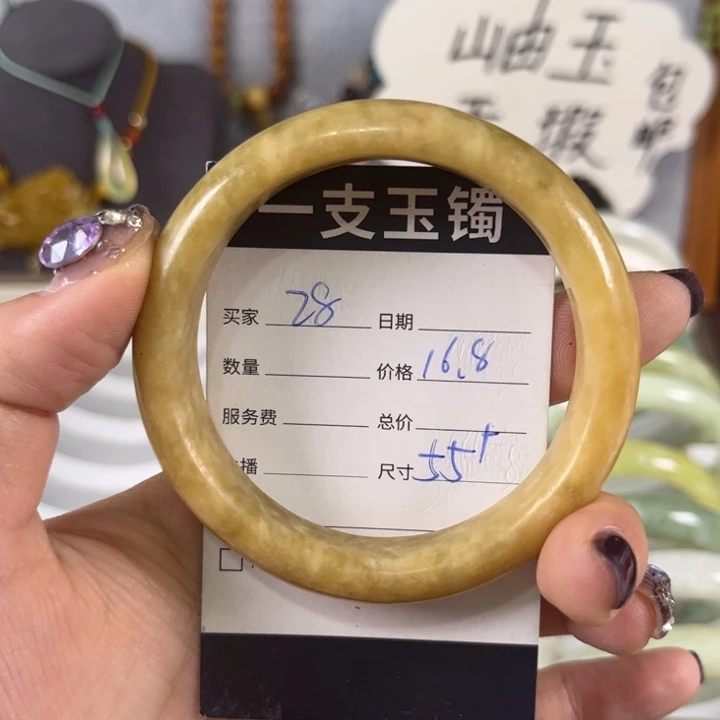 岫玉
包邮
一支玉镯
买家 28 日期
数量 价格 16.8
服务费 总价
播 尺寸 55+